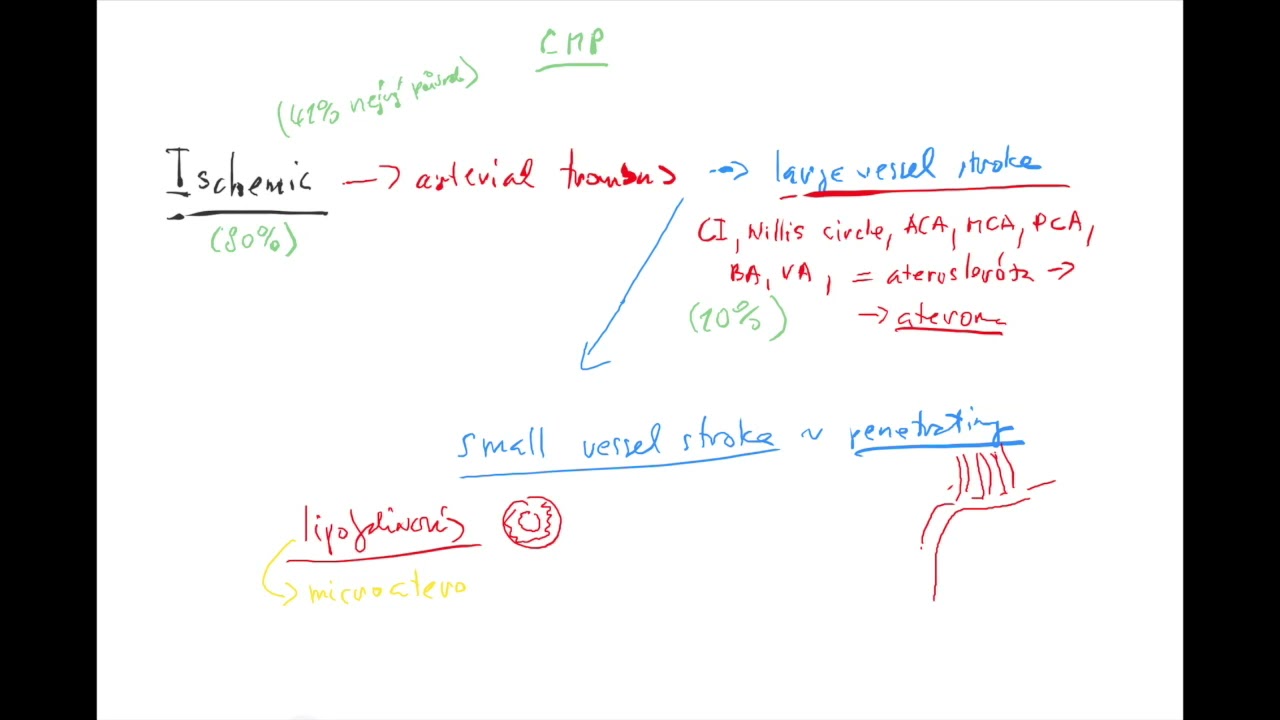 CMP
(41% nejv. původ)
Ischemic → arterial trombus → large vessel stroke
(80%)
CI, Willis circle, ACA, MCA, PCA,
BA, VA, = →
(10%) → aterom
small vessel stroke ~ penetrating
microatero